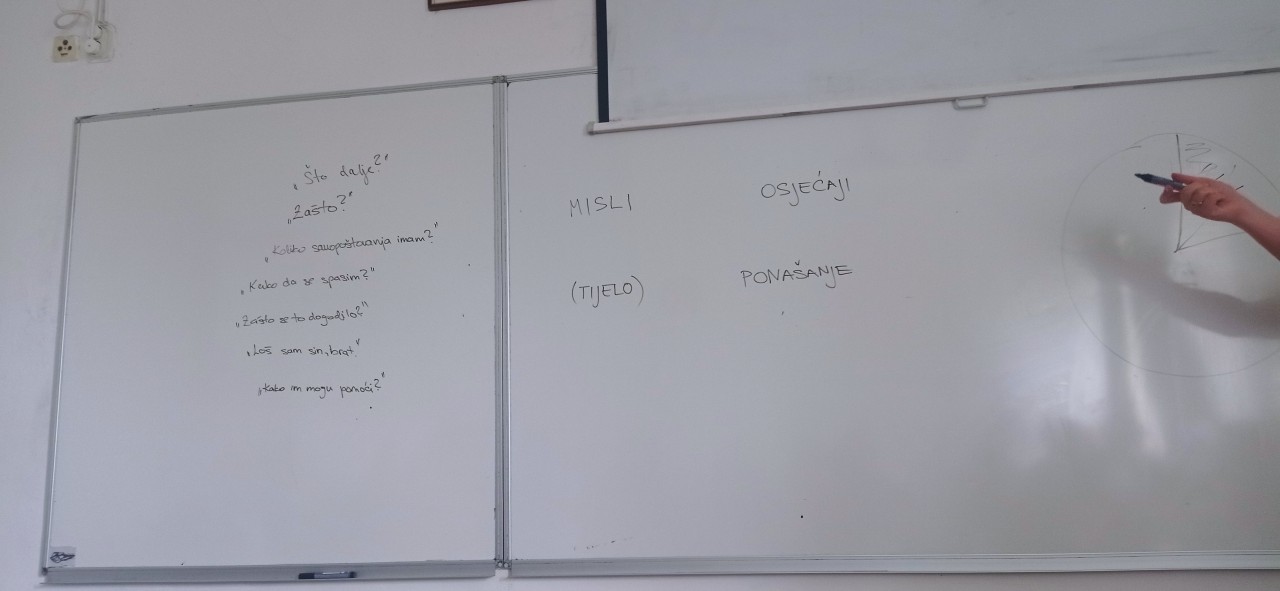 „Što dalje?"
„Zašto?"
„Koliko samopoštovanja imam?"
„Kako da se spasim?"
„Zašto se to dogodilo?"
„Loš sam sin, brat."
„Kako im mogu pomoći?"
MISLI
OSJEĆAJI
(TIJELO)
PONAŠANJE